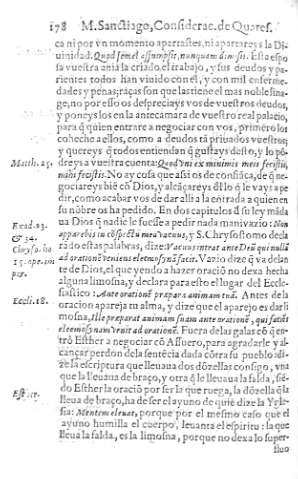 178 M. Sanctiago, Considerac. de Quares.
ca ni por vn momento apartastes, ni apartareys la Di-
uinidad. Quod semel assumpsit, nunquam dimisit. Esta espo
sa vuestra ania la criado el trabajo, y sus deudos y pa-
rientes todos han viuido con el, y con mil enferme-
dades y penas; raças son que lastiene el mas noble lina-
ge, no por esso os despreciays vos de vuestros deudos,
y poneys los en la antecamara de vuestro real palacio,
para q̃ quien entrare a negociar con vos, primero los
coheche a ellos, como a deudos tã priuados vuestros;
y quereys q̃ todos entiendan q̃ gustays desto, y lo põ-
Matth. 25. dreys a vuestra cuenta: Quod vni ex minimis meis fecistis,
mihi fecistis. No ay cosa que assi os de confiãça, de q̃ ne-
gociareys biẽ cõ Dios, y alcãçareys dl lo q̃ le vays a pe-
dir, como acabar vos de dar alli a la entrada a quien en
su nõbre os ha pedido. En dos capitulos d̃ su ley mãda
Exod. 23. ua Dios q̃ nadie le fuesse a pedir nada manivazio: Non
& 34. apparebis in cõspectu meo vacuus, y S. Chrysostomo decla
Chryso. ho rado estas palabras, dize: Vacuus intrat ante Deũ qui nullã
ad orationẽ veniens eleemosynã facit. Vazio dize q̃ va delan
te de Dios, el que yendo a hazer oraciõ no dexa hecha
alguna limosna, y declara para esto el lugar del Ecle-
Eccli. 18. siastico: Ante orationẽ prepara animam tuã. Antes de la
oracion apareja tu alma, y dize que el aparejo es dar li
mosna, Ille preparat animam suam ante orationẽ, qui facit
eleemosynam venit ad orationẽ. Fuera delas galas cõ q̃ en-
trò Esther a negociar cõ Assuero, para agradarle y al-
cançar perdon dela sentẽcia dada cõtra su pueblo, di-
ze la escriptura que lleuaua dos dõzellas consigo, vna
que la lleuaua de braço, y otra q̃ le lleuaua la falda, siẽ-
do Esther la oraciõ por ser la que ruega, la dõzella q̃ la
lleua de braço, ha de ser el ayuno de quiẽ dize la Ygle-
sia: Mentem eleuat, porque por el mesmo caso que el
ayuno humilla el cuerpo, leuanta el espiritu: la que
lleua la falda, es la limosna, porque no dexa lo super-
fluo